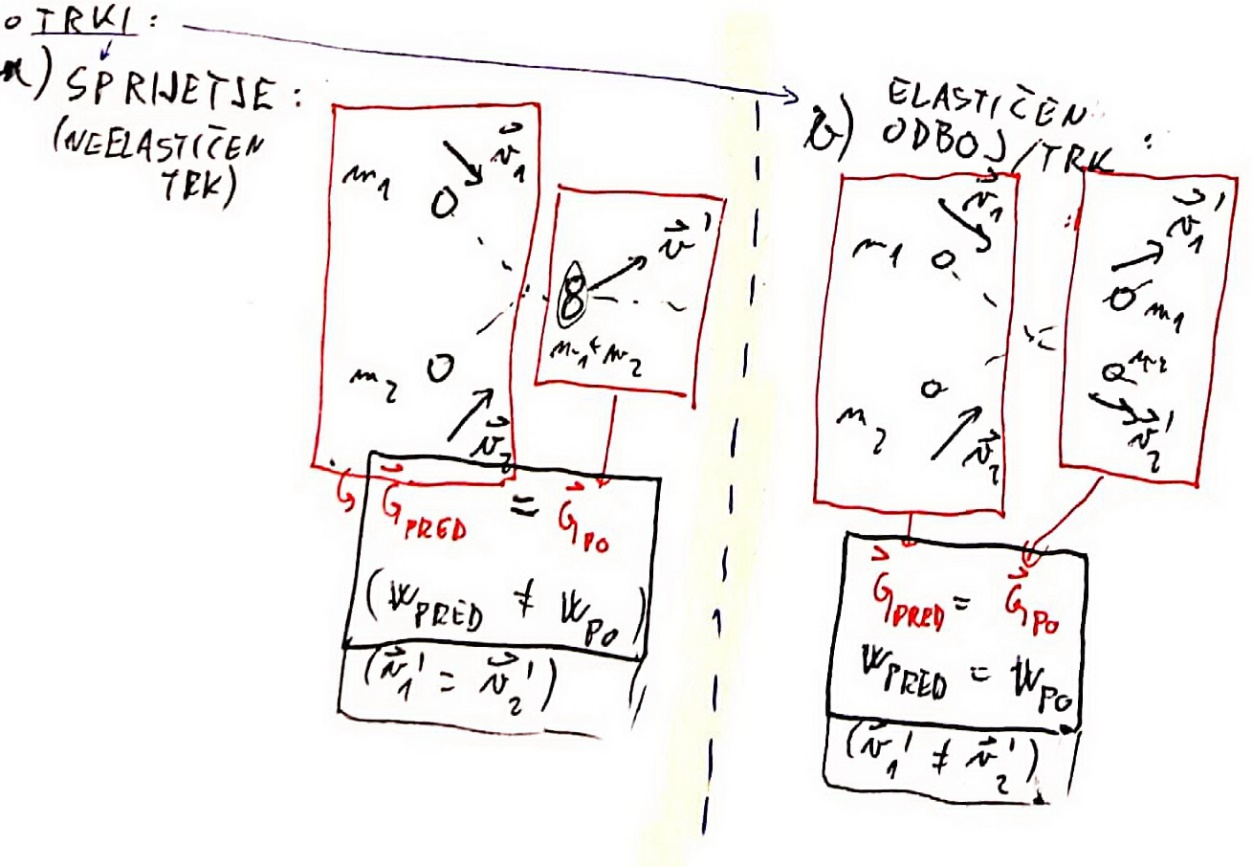 • TRKI:
a) SPRIJETJE:
(NEELASTIČEN
TRK)
m₁
v⃗₁
m₂
v⃗₂
v⃗'
m₁+m₂
G⃗PRED = G⃗PO
(WPRED ≠ WPO)
(v⃗₁' = v⃗₂')
b) ELASTIČEN
ODBOJ/TRK:
v⃗₁
m₁
m₂
v⃗₂
v⃗₁'
m₁
m₂
v⃗₂'
G⃗PRED = G⃗PO
WPRED = WPO
(v⃗₁' ≠ v⃗₂')